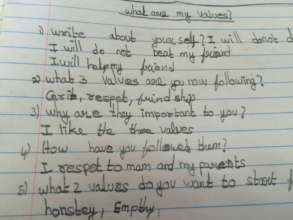 what are my values?
1) write about yourself? I will do not d
I will do not beat my friend
I will help my friend
2) what 3 values are you now following?
Carit, respet, friend ship
3) why are they important to you?
I like the three values
4) How have you followed them?
I respet to mam and my parents
5) what 2 values do you want to start f
honstey, Empthy,